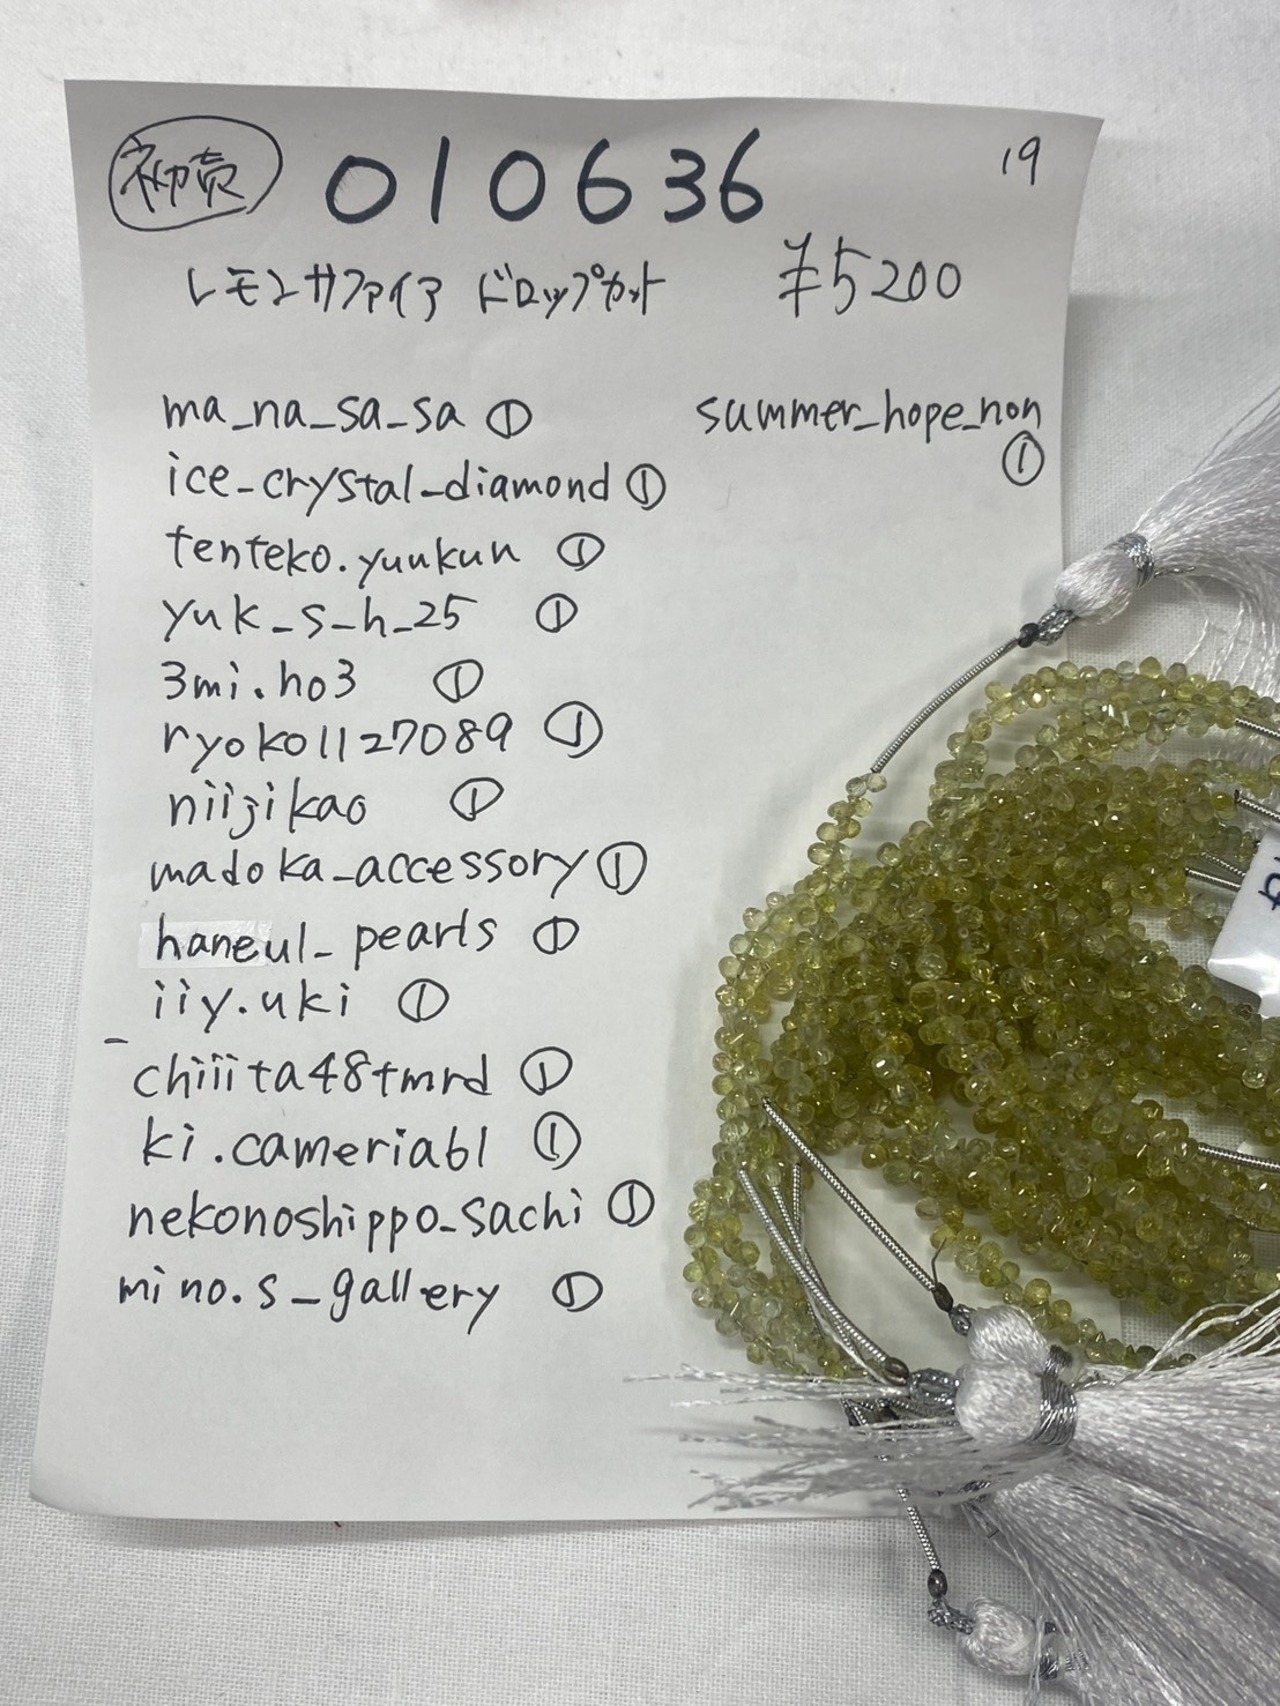 初売 010636 19
レモンサファイア ドロップカット ¥5200
ma_na_sa_sa ①
summer_hope_non
①
ice_crystal_diamond ①
tenteko.yuukun ①
yuk_s_h_25 ①
3mi.ho3 ①
ryoko1127089 ①
niijikao ①
madoka_accessory ①
haneul_pearls ①
iiy.uki ①
chiiita48tmrd ①
ki.cameria61 ①
nekonoshippo_sachi ①
mino.s_gallery ①